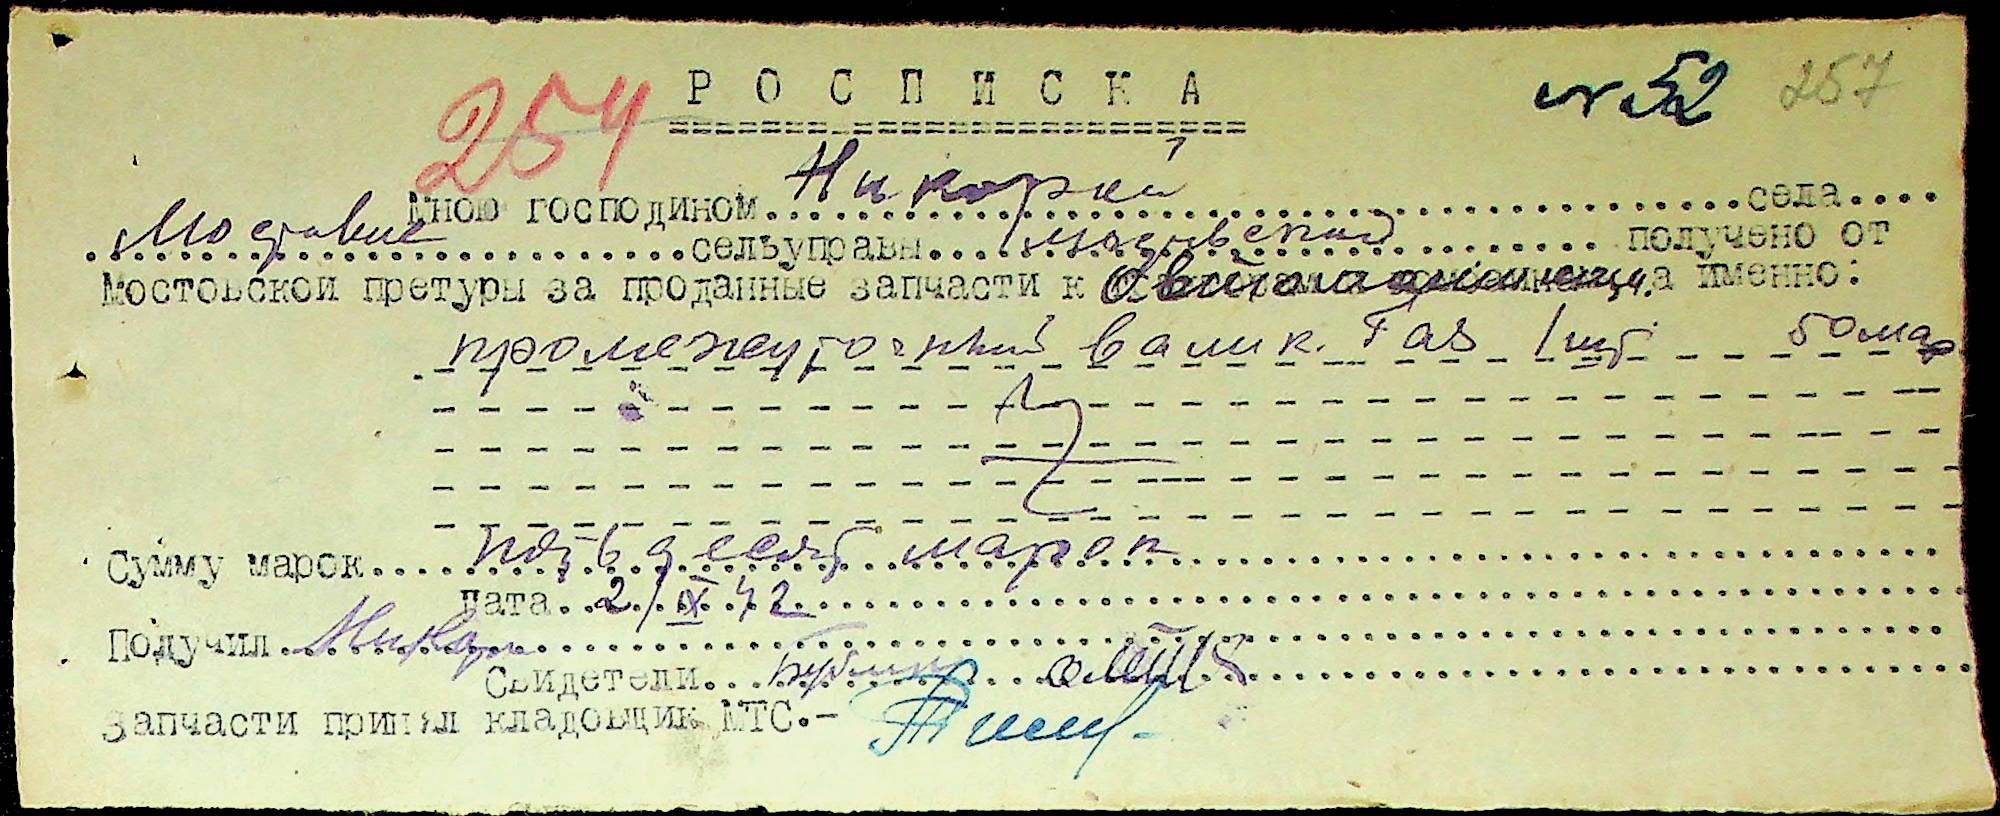 254 РОСПИСКА № 52 257
Мною господином Никорка села
Мостовие сельуправы Мостовской получено от
Мостовской претуры за проданные запчасти к а именно:
промежуточный валик. Газ 1 шт 50 мар
Сумму марок пятьдесят марок
Дата 2/IX 42
Получил
Свидетели
Запчасти принял кладовщик МТС.-